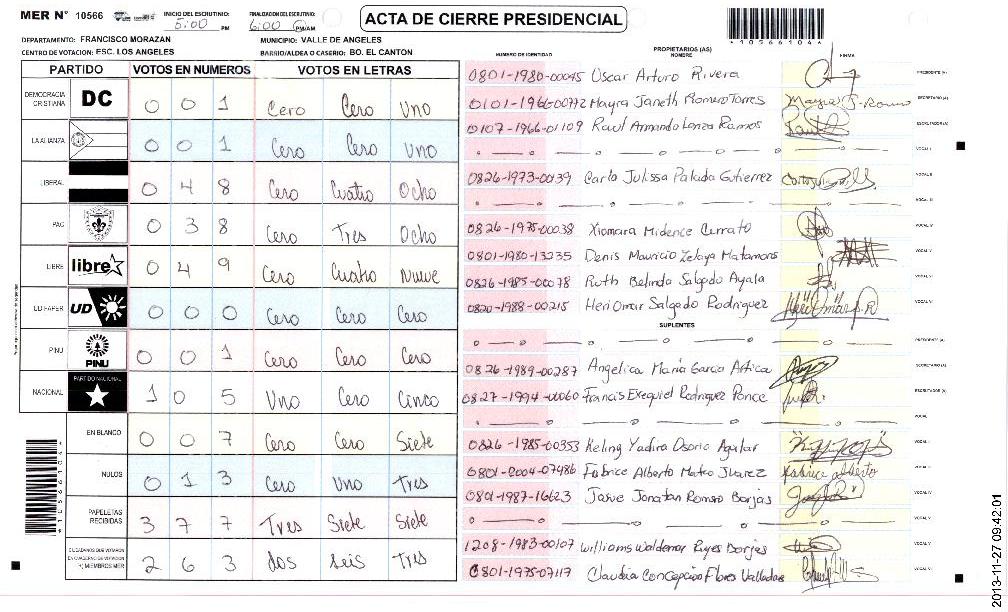 MER N° 10566 INICIO DEL ESCRUTINIO: 5:00 PM FINALIZACION DEL ESCRUTINIO: 6:00 PM/AM ACTA DE CIERRE PRESIDENCIAL
*10566104*
DEPARTAMENTO: FRANCISCO MORAZAN MUNICIPIO: VALLE DE ANGELES
CENTRO DE VOTACION: ESC. LOS ANGELES BARRIO/ALDEA O CASERIO: BO. EL CANTON
PARTIDO VOTOS EN NUMEROS VOTOS EN LETRAS
DEMOCRACIA CRISTIANA DC 0 0 1 Cero Cero Uno
LA ALIANZA 0 0 1 Cero Cero Uno
LIBERAL 0 4 8 Cero Cuatro Ocho
PAC 0 3 8 Cero Tres Ocho
LIBRE libre 0 4 9 Cero Cuatro Nueve
UD FAPER UD 0 0 0 Cero Cero Cero
PINU PINU 0 0 1 Cero Cero Cero
NACIONAL PARTIDO NACIONAL 1 0 5 Uno Cero Cinco
EN BLANCO 0 0 7 Cero Cero Siete
NULOS 0 1 3 Cero Uno Tres
PAPELETAS RECIBIDAS 3 7 7 Tres Siete Siete
CIUDADANOS QUE VOTARON EN CUADERNO DE VOTACION (+) MIEMBROS MER 2 6 3 dos seis Tres
PROPIETARIOS (AS)
NUMERO DE IDENTIDAD NOMBRE FIRMA
0801-1980-00045 Oscar Arturo Rivera PRESIDENTE (A)
0101-1966-00772 Mayra Janeth Romero Torres SECRETARIO (A)
0107-1966-01109 Raul Armando Lanza Ramos ESCRUTADOR (A)
VOCAL I
0826-1973-00139 Carlo Julissa Palada Gutierrez VOCAL II
VOCAL III
0826-1975-00038 Xiomara Midence Cerrato VOCAL IV
0801-1980-13235 Denis Mauricio Zelaya Matamoros VOCAL V
0826-1985-00078 Ruth Belinda Salgado Ayala
0820-1988-00215 Heri Omar Salgado Rodriguez
SUPLENTES
PRESIDENTE (A)
0826-1989-00287 Angelica Maria Garcia Artica SECRETARIO (A)
0827-1994-00060 Francis Exequiel Rodriguez Ponce ESCRUTADOR (A)
VOCAL I
0826-1985-00353 Keling Yadira Osorio Aguilar
0801-0004-07486 Fabrice Alberto Mateo Juarez Fabrice alberto
0801-1987-16623 Josue Jonatan Romero Borjas
1208-1983-00107 Williams Waldemar Reyes Borjas
0801-1975-07117 Claudia Concepcion Flores Valladares
*10566104*
2013-11-27 09:42:01